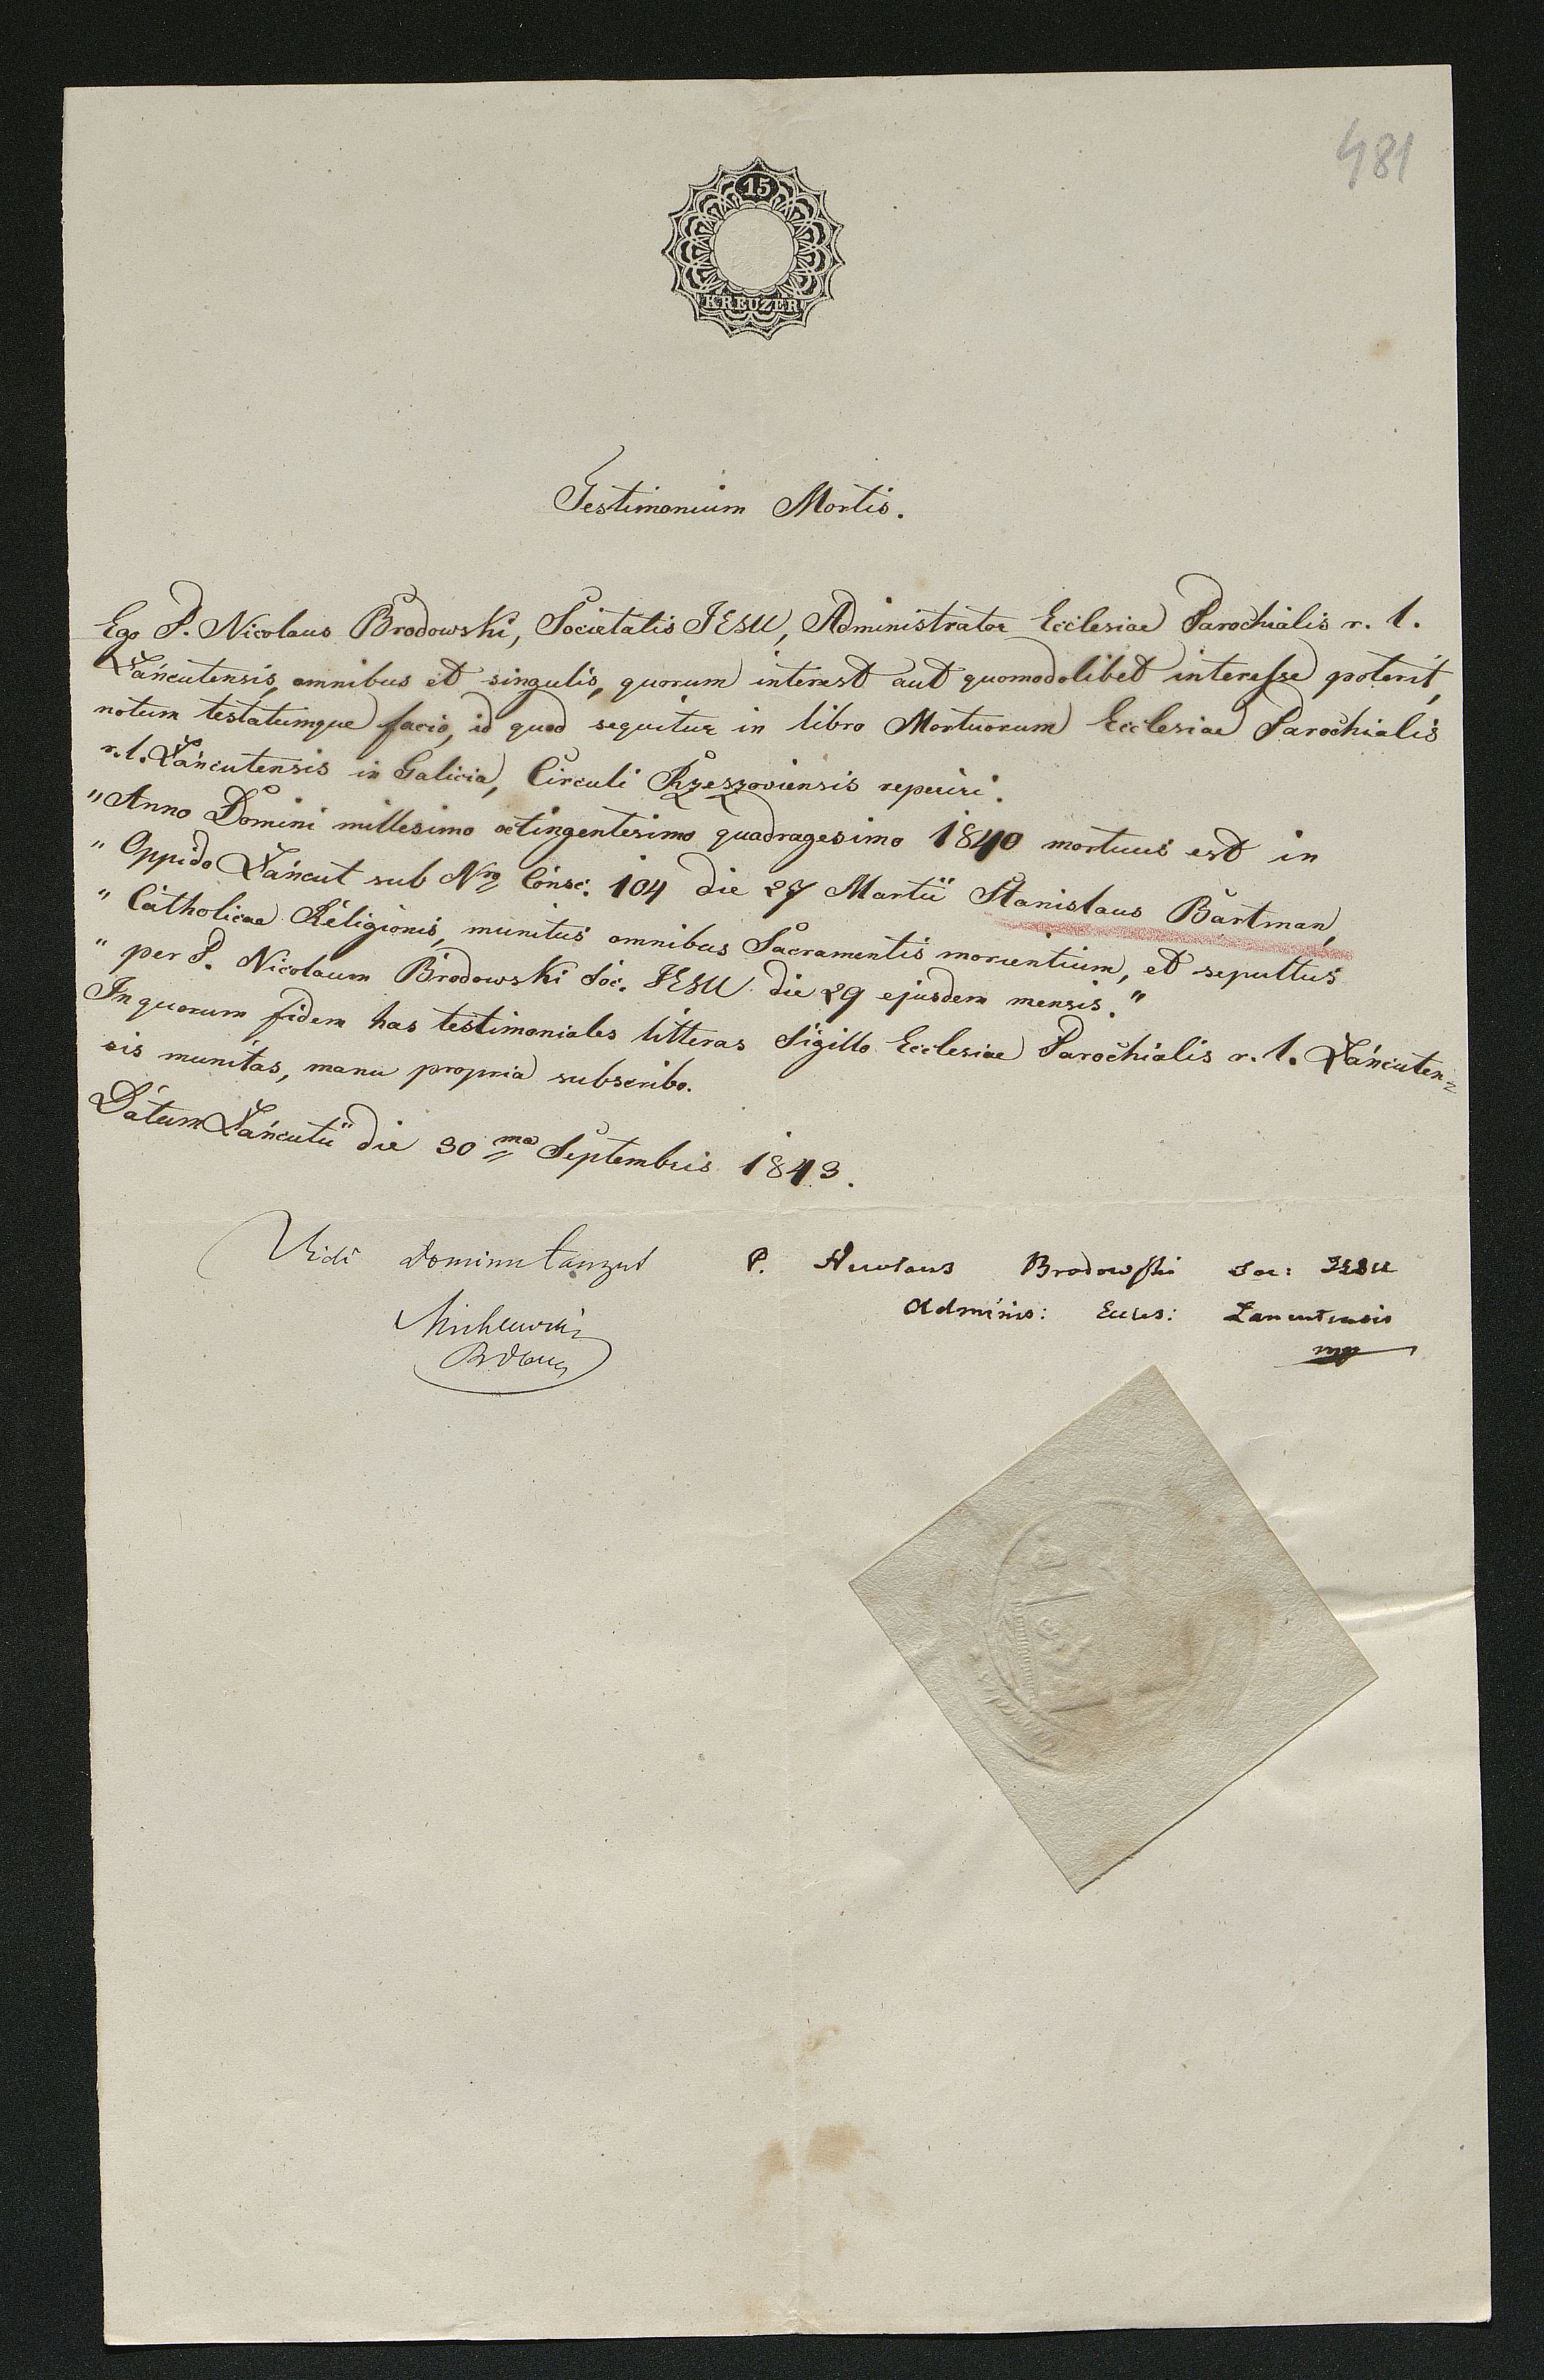 481
15
KREUZER
Testimonium Mortis.
Ego P. Nicolaus Brodowski, Societatis JESU, Administrator Ecclesiae Parochialis r. l.
Łańcutensis, omnibus et singulis, quorum interest aut quomodolibet interesse poterit,
notum testatumque facio, id quod sequitur in libro Mortuorum Ecclesiae Parochialis
r. l. Łańcutensis in Galicia, Circuli Rzeszoviensis reperiri.
"Anno Domini millesimo octingentesimo quadragesimo 1840 mortuus est in
" Oppido Łańcut sub Nro Consc. 104 die 27 Martii Stanislaus Bartman,
" Catholicae Religionis, munitus omnibus Sacramentis morientium, et sepultus
" per P. Nicolaum Brodowski Soc. JESU die 29 ejusdem mensis."
In quorum fidem has testimoniales litteras Sigillo Ecclesiae Parochialis r. l. Łańcuten=
sis munitas, manu propria subscribo.
Datum Łańcutii die 30ma Septembris 1843.
Vidi Dominu Lanzut
P. Nicolaus Brodowski Soc: JESU
Adminis: Eccles: Lancutensis
mp